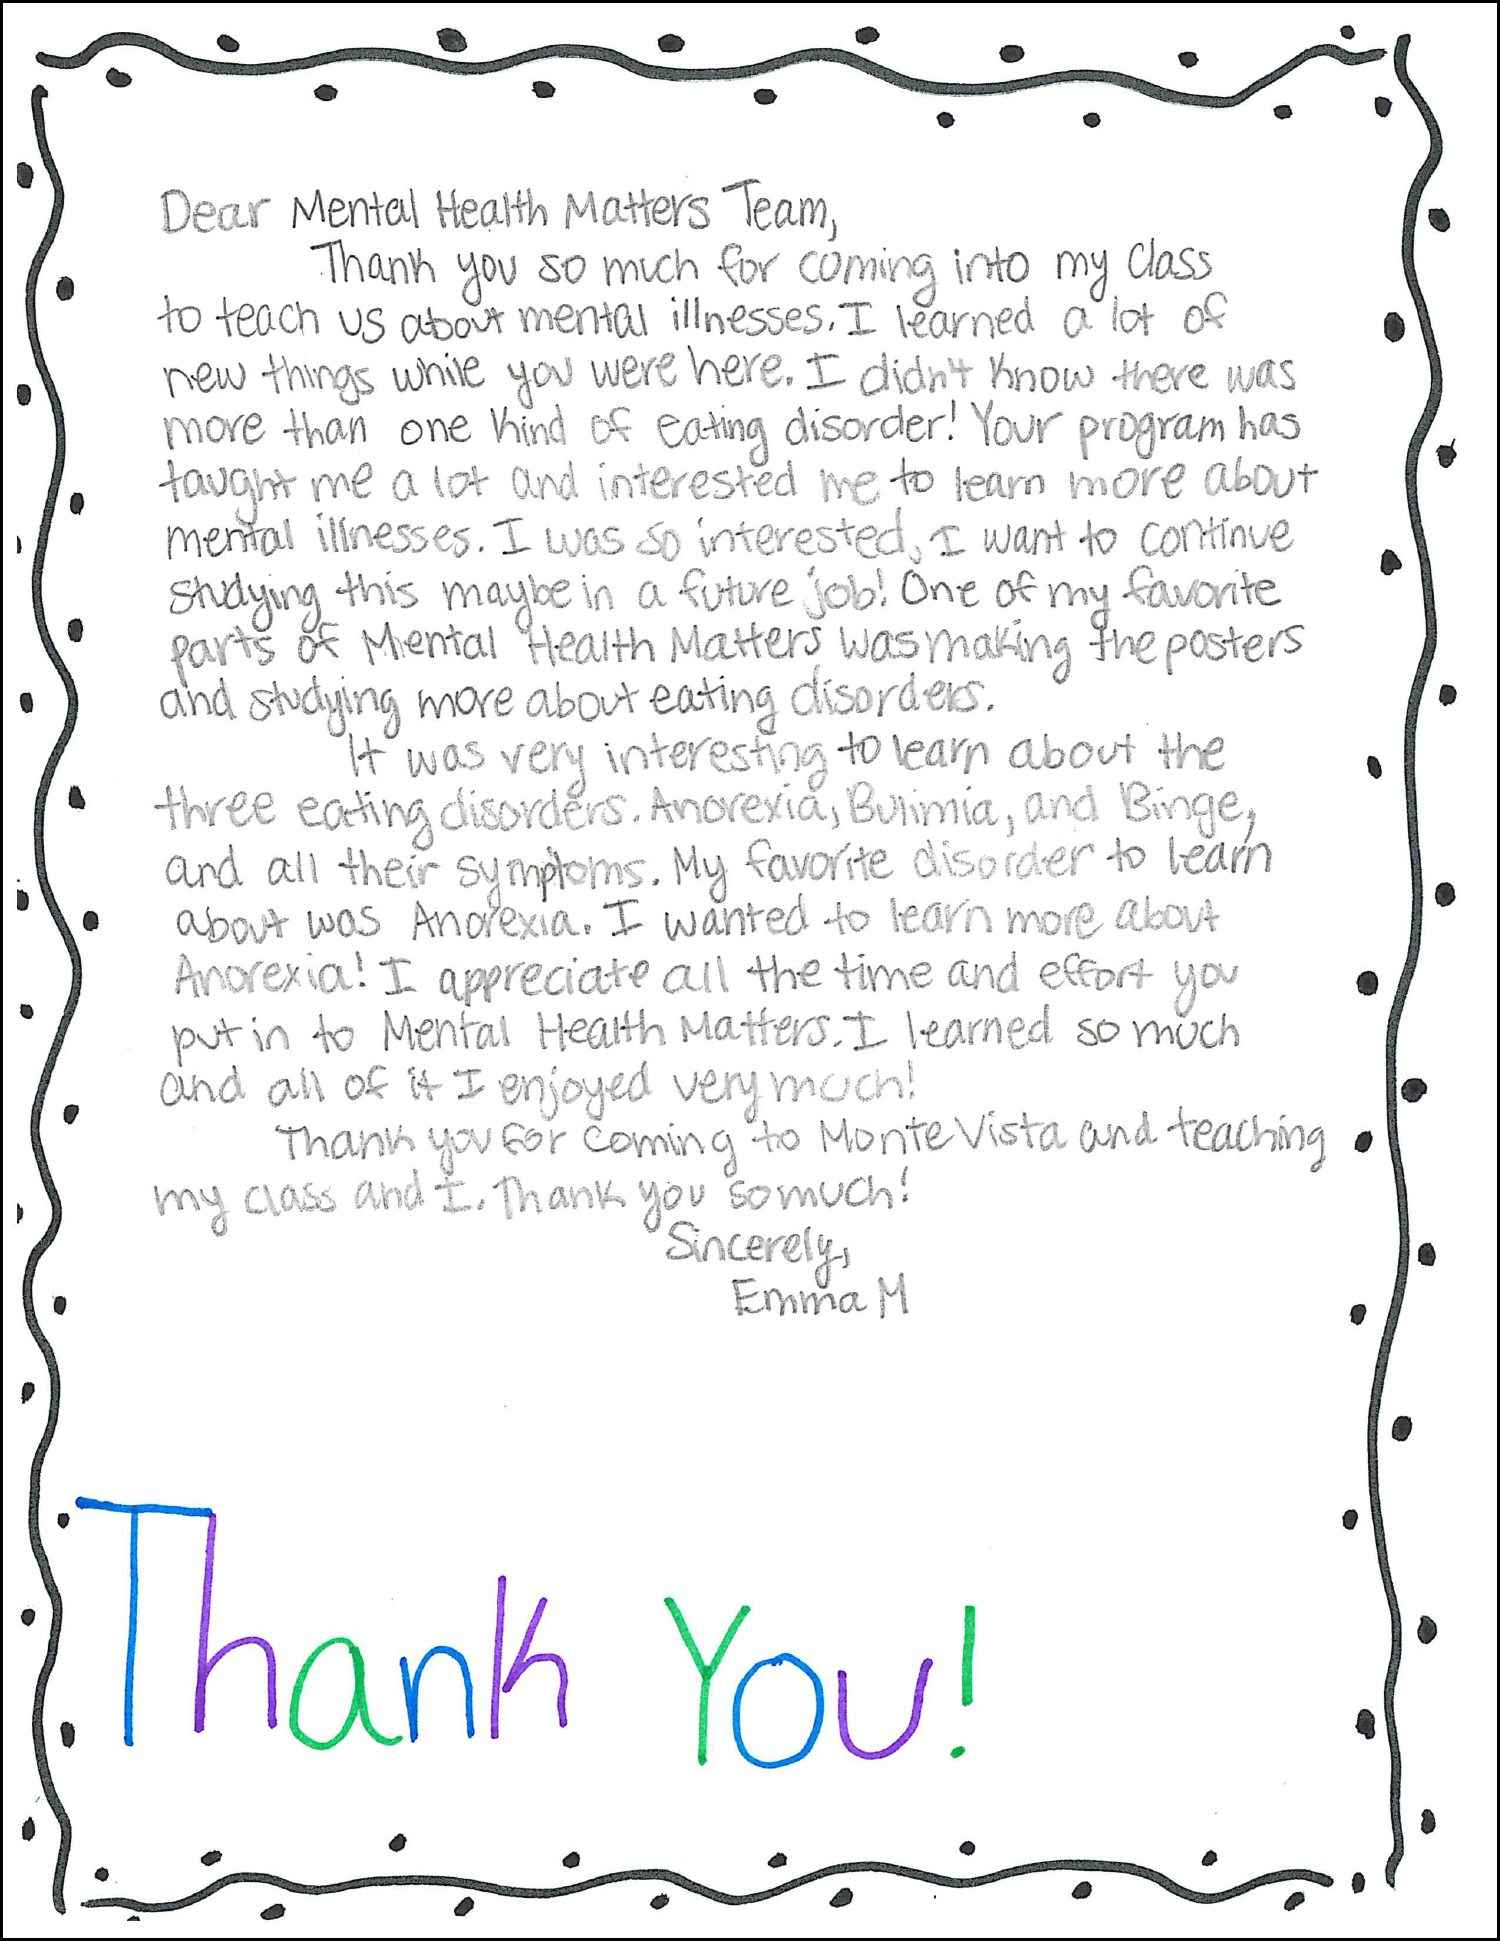 Dear Mental Health Matters Team,
Thank you so much for coming into my class
to teach us about mental illnesses. I learned a lot of
new things while you were here. I didn't know there was
more than one kind of eating disorder! Your program has
taught me a lot and interested me to learn more about
mental illnesses. I was so interested, I want to continue
studying this maybe in a future job! One of my favorite
parts of Mental Health Matters was making the posters
and studying more about eating disorders.
It was very interesting to learn about the
three eating disorders. Anorexia, Bulimia, and Binge,
and all their symptoms. My favorite disorder to learn
about was Anorexia. I wanted to learn more about
Anorexia! I appreciate all the time and effort you
put in to Mental Health Matters. I learned so much
and all of it I enjoyed very much!
Thank you for coming to Monte Vista and teaching
my class and I. Thank you so much!
Sincerely,
Emma M
Thank You!